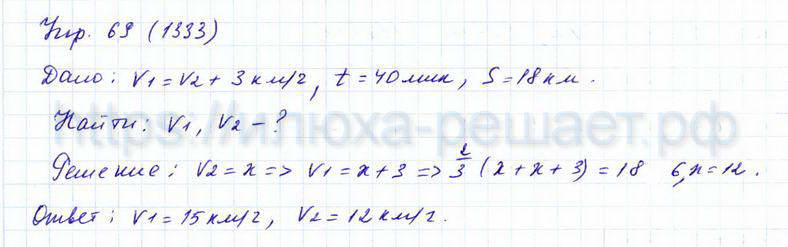 Упр. 69 (1333)
Дано: V1 = V2 + 3 км/ч, t = 40 мин, S = 18 км.
Найти: V1, V2 - ?
Решение: V2 = x => V1 = x + 3 => 2/3 (x + x + 3) = 18 б, x = 12.
Ответ: V1 = 15 км/ч, V2 = 12 км/ч.
https://илюха-решает.рф